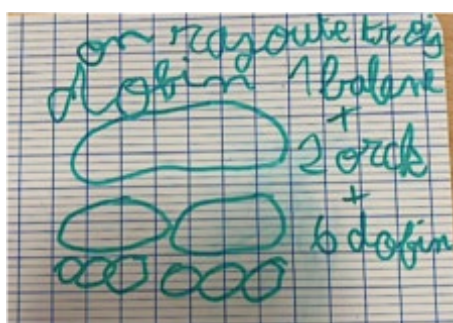 on rajoute trois
dofin 1 balane
+
2 orck
+
6 dofin